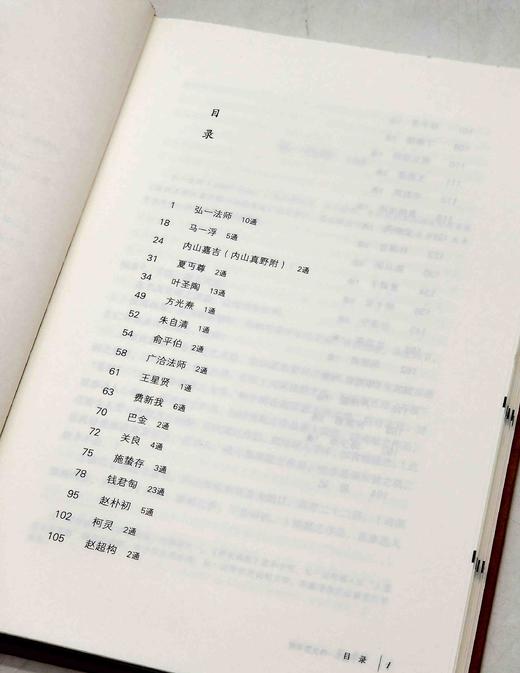 目
录
1 弘一法师 10通
18 马一浮 5通
24 内山嘉吉（内山真野附） 2通
31 夏丏尊 2通
34 叶圣陶 13通
49 方光焘 1通
52 朱自清 1通
54 俞平伯 2通
58 广洽法师 2通
61 王星贤 1通
63 费新我 6通
70 巴金 2通
72 关良 4通
75 施蛰存 3通
78 钱君匋 23通
95 赵朴初 5通
102 柯灵 2通
105 赵超构 2通
目 录 1